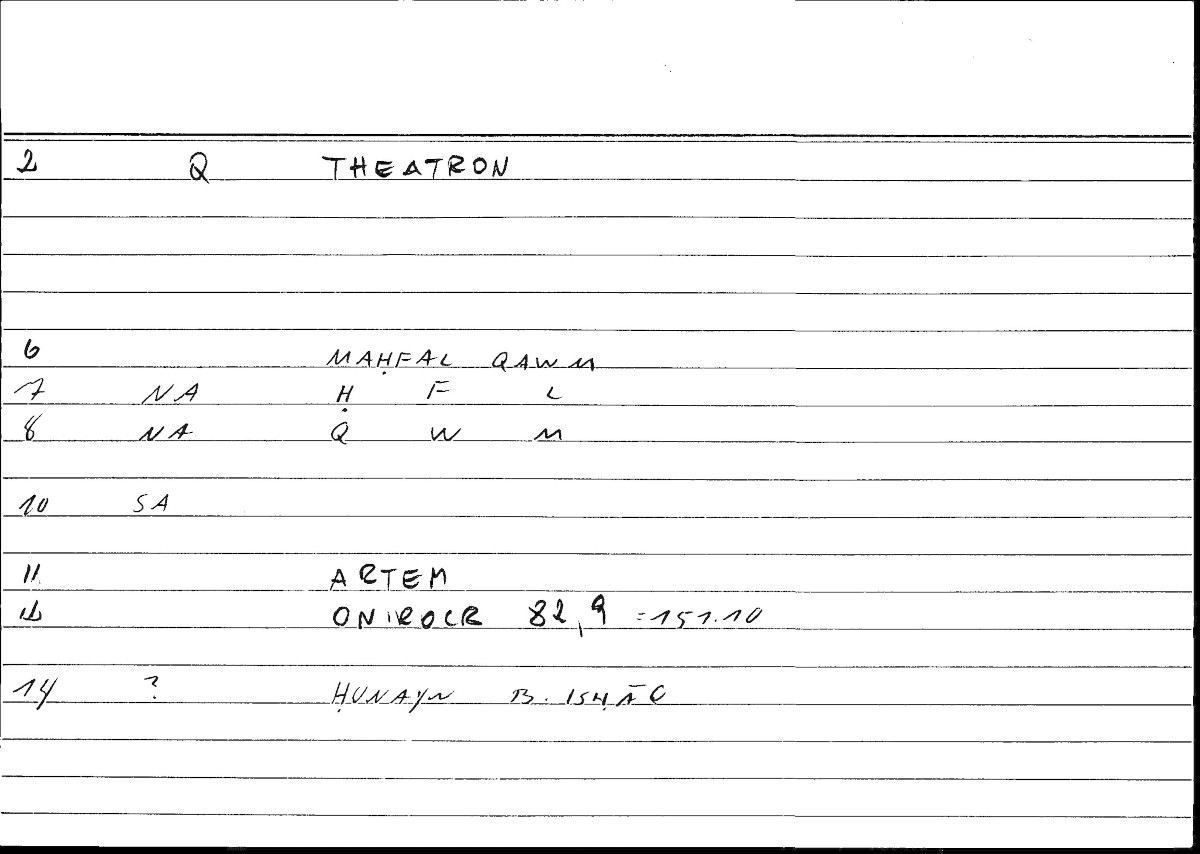 2 Q THEATRON
6 MAḤFAL QAWM
7 NA Ḥ F L
8 NA Q W M
10 SA
11 ARTEM
12 ONIROCR 82,9 =151.10
14 ? ḤUNAYN B. ISḤĀQ